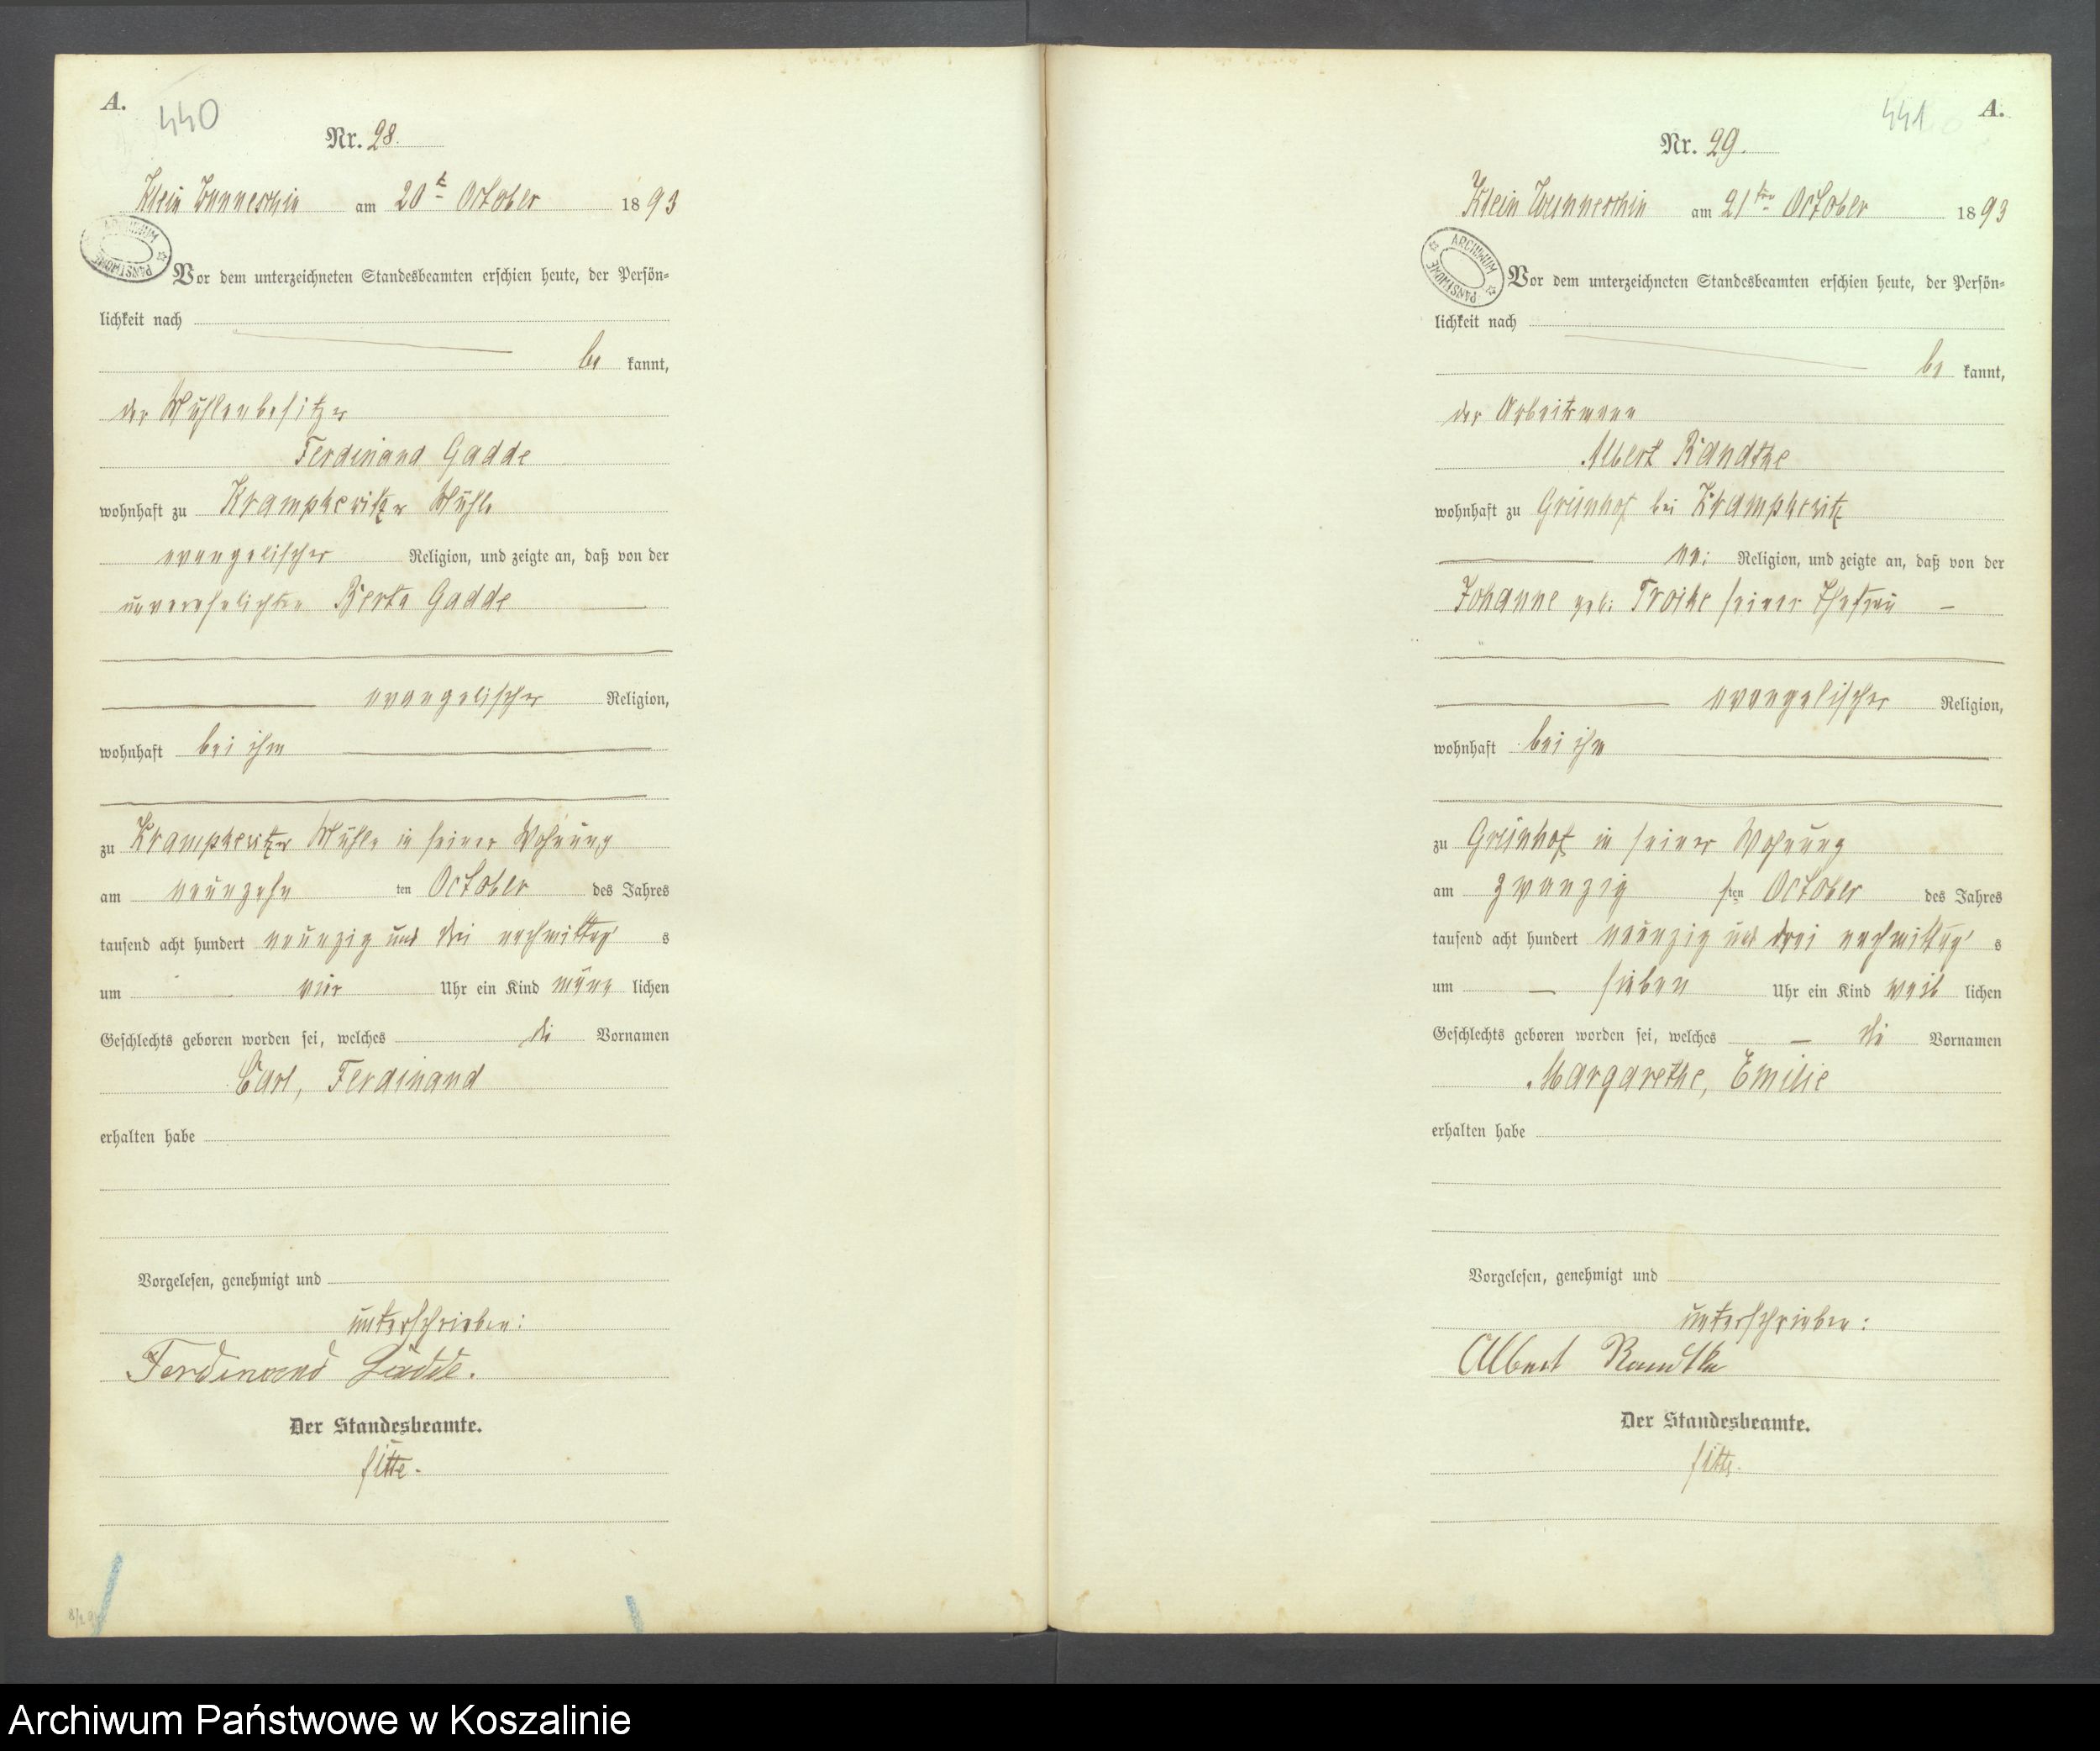 A.
440
Nr. 28.
Klein Wunneschin am 20t October 1893
ARCHIWUM PAŃSTWOWE
Vor dem unterzeichneten Standesbeamten erschien heute, der Persön-
lichkeit nach
be kannt,
der Mühlenbesitzer
Ferdinand Gadde
wohnhaft zu Krampkewitzer Mühle
evangelischer Religion, und zeigte an, daß von der
unverehelichten Berta Gadde
evangelischer Religion,
wohnhaft bei ihm
zu Krampkewitzer Mühle in seiner Wohnung
am neunzehn ten October des Jahres
tausend acht hundert neunzig und drei nachmittag s
um vier Uhr ein Kind männ lichen
Geschlechts geboren worden sei, welches die Vornamen
Carl, Ferdinand
erhalten habe
Vorgelesen, genehmigt und
unterschrieben:
Ferdinand Gadde.
Der Standesbeamte.
441
A.
Nr. 29.
Klein Wunneschin am 21ten October 1893
ARCHIWUM PAŃSTWOWE
Vor dem unterzeichneten Standesbeamten erschien heute, der Persön-
lichkeit nach
be kannt,
der Arbeitsmann
Albert Randtke
wohnhaft zu Grünhof bei Krampkewitz
ev: Religion, und zeigte an, daß von der
Johanne geb: Troike seiner Ehefrau
evangelischer Religion,
wohnhaft bei ihm
zu Grünhof in seiner Wohnung
am zwanzig sten October des Jahres
tausend acht hundert neunzig und drei nachmittag s
um sieben Uhr ein Kind weib lichen
Geschlechts geboren worden sei, welches die Vornamen
Margarethe, Emilie
erhalten habe
Vorgelesen, genehmigt und
unterschrieben:
Albert Randtke
Der Standesbeamte.
Archiwum Państwowe w Koszalinie